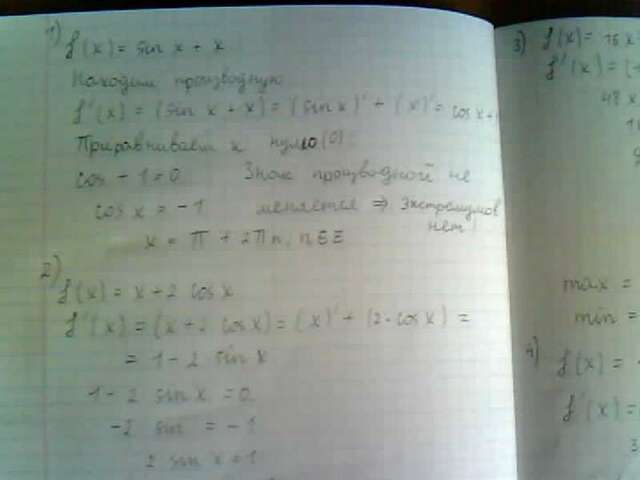 1)
f(x) = sin x + x
Находим производную
f'(x) = (sin x + x) = (sin x)' + (x)' = cos x +
Приравниваем к нулю (0)
cos - 1 = 0 Знак производной не
cos x = -1 меняется => Экстремумов
нет!
x = π + 2πn, n
2)
f(x) = x + 2 cos x
f'(x) = (x + 2 cos x) = (x)' + (2·cos x) =
= 1 - 2 sin x
1 - 2 sin x = 0
-2 sin = -1
2 sin x = 1
3) f(x) = 16 x
f'(x) = (
48 x
max =
min =
4)
f(x) =
f'(x) =
3